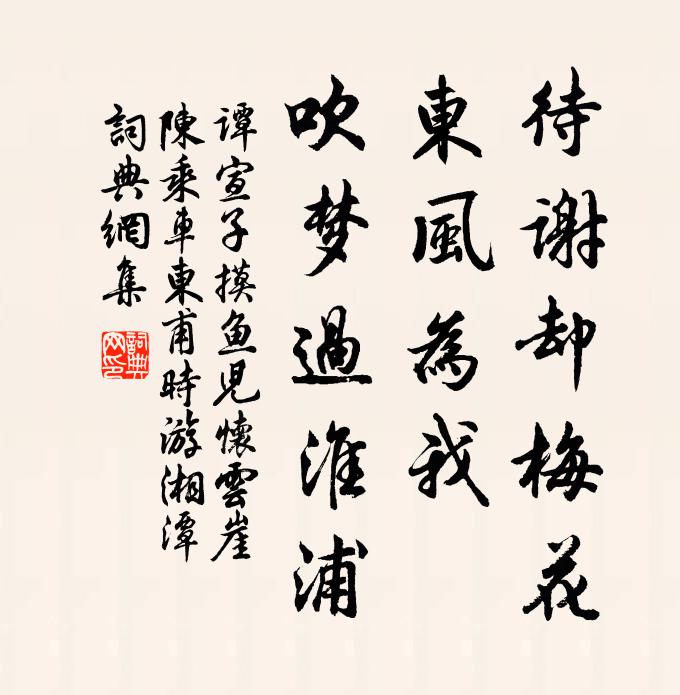 待谢却梅花
東風為我
吹梦過淮浦
谭宣子摸鱼児懷雲崖
陳乘車東甫時游湘潭
詞典網集
詞典
网印